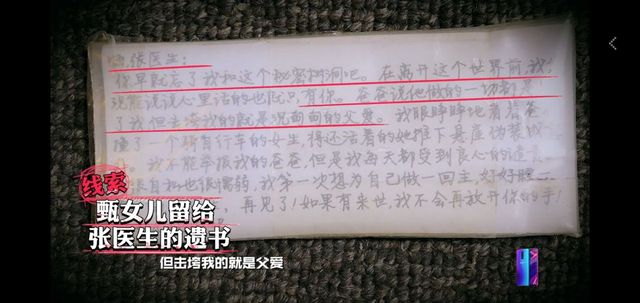 嘿,张医生:
你早就忘了我和这个秘密树洞吧。在离开这个世界前,我
能说说心里话的也就只有你。爸爸说他做的一切都是
了我但击垮我的就是沉甸甸的父爱。我眼睁睁地看着爸
撞了一个骑自行车的女生,将还活着的她推下悬崖伪装成
我不能举报我的爸爸,但是我每天都受到良心的谴
很自私也很懦弱,我第一次想为自己做一回主,好好睡一
再见了!如果有来世,我不会再放开你的手!
线索
甄女儿留给
张医生的遗书
但击垮我的就是父爱